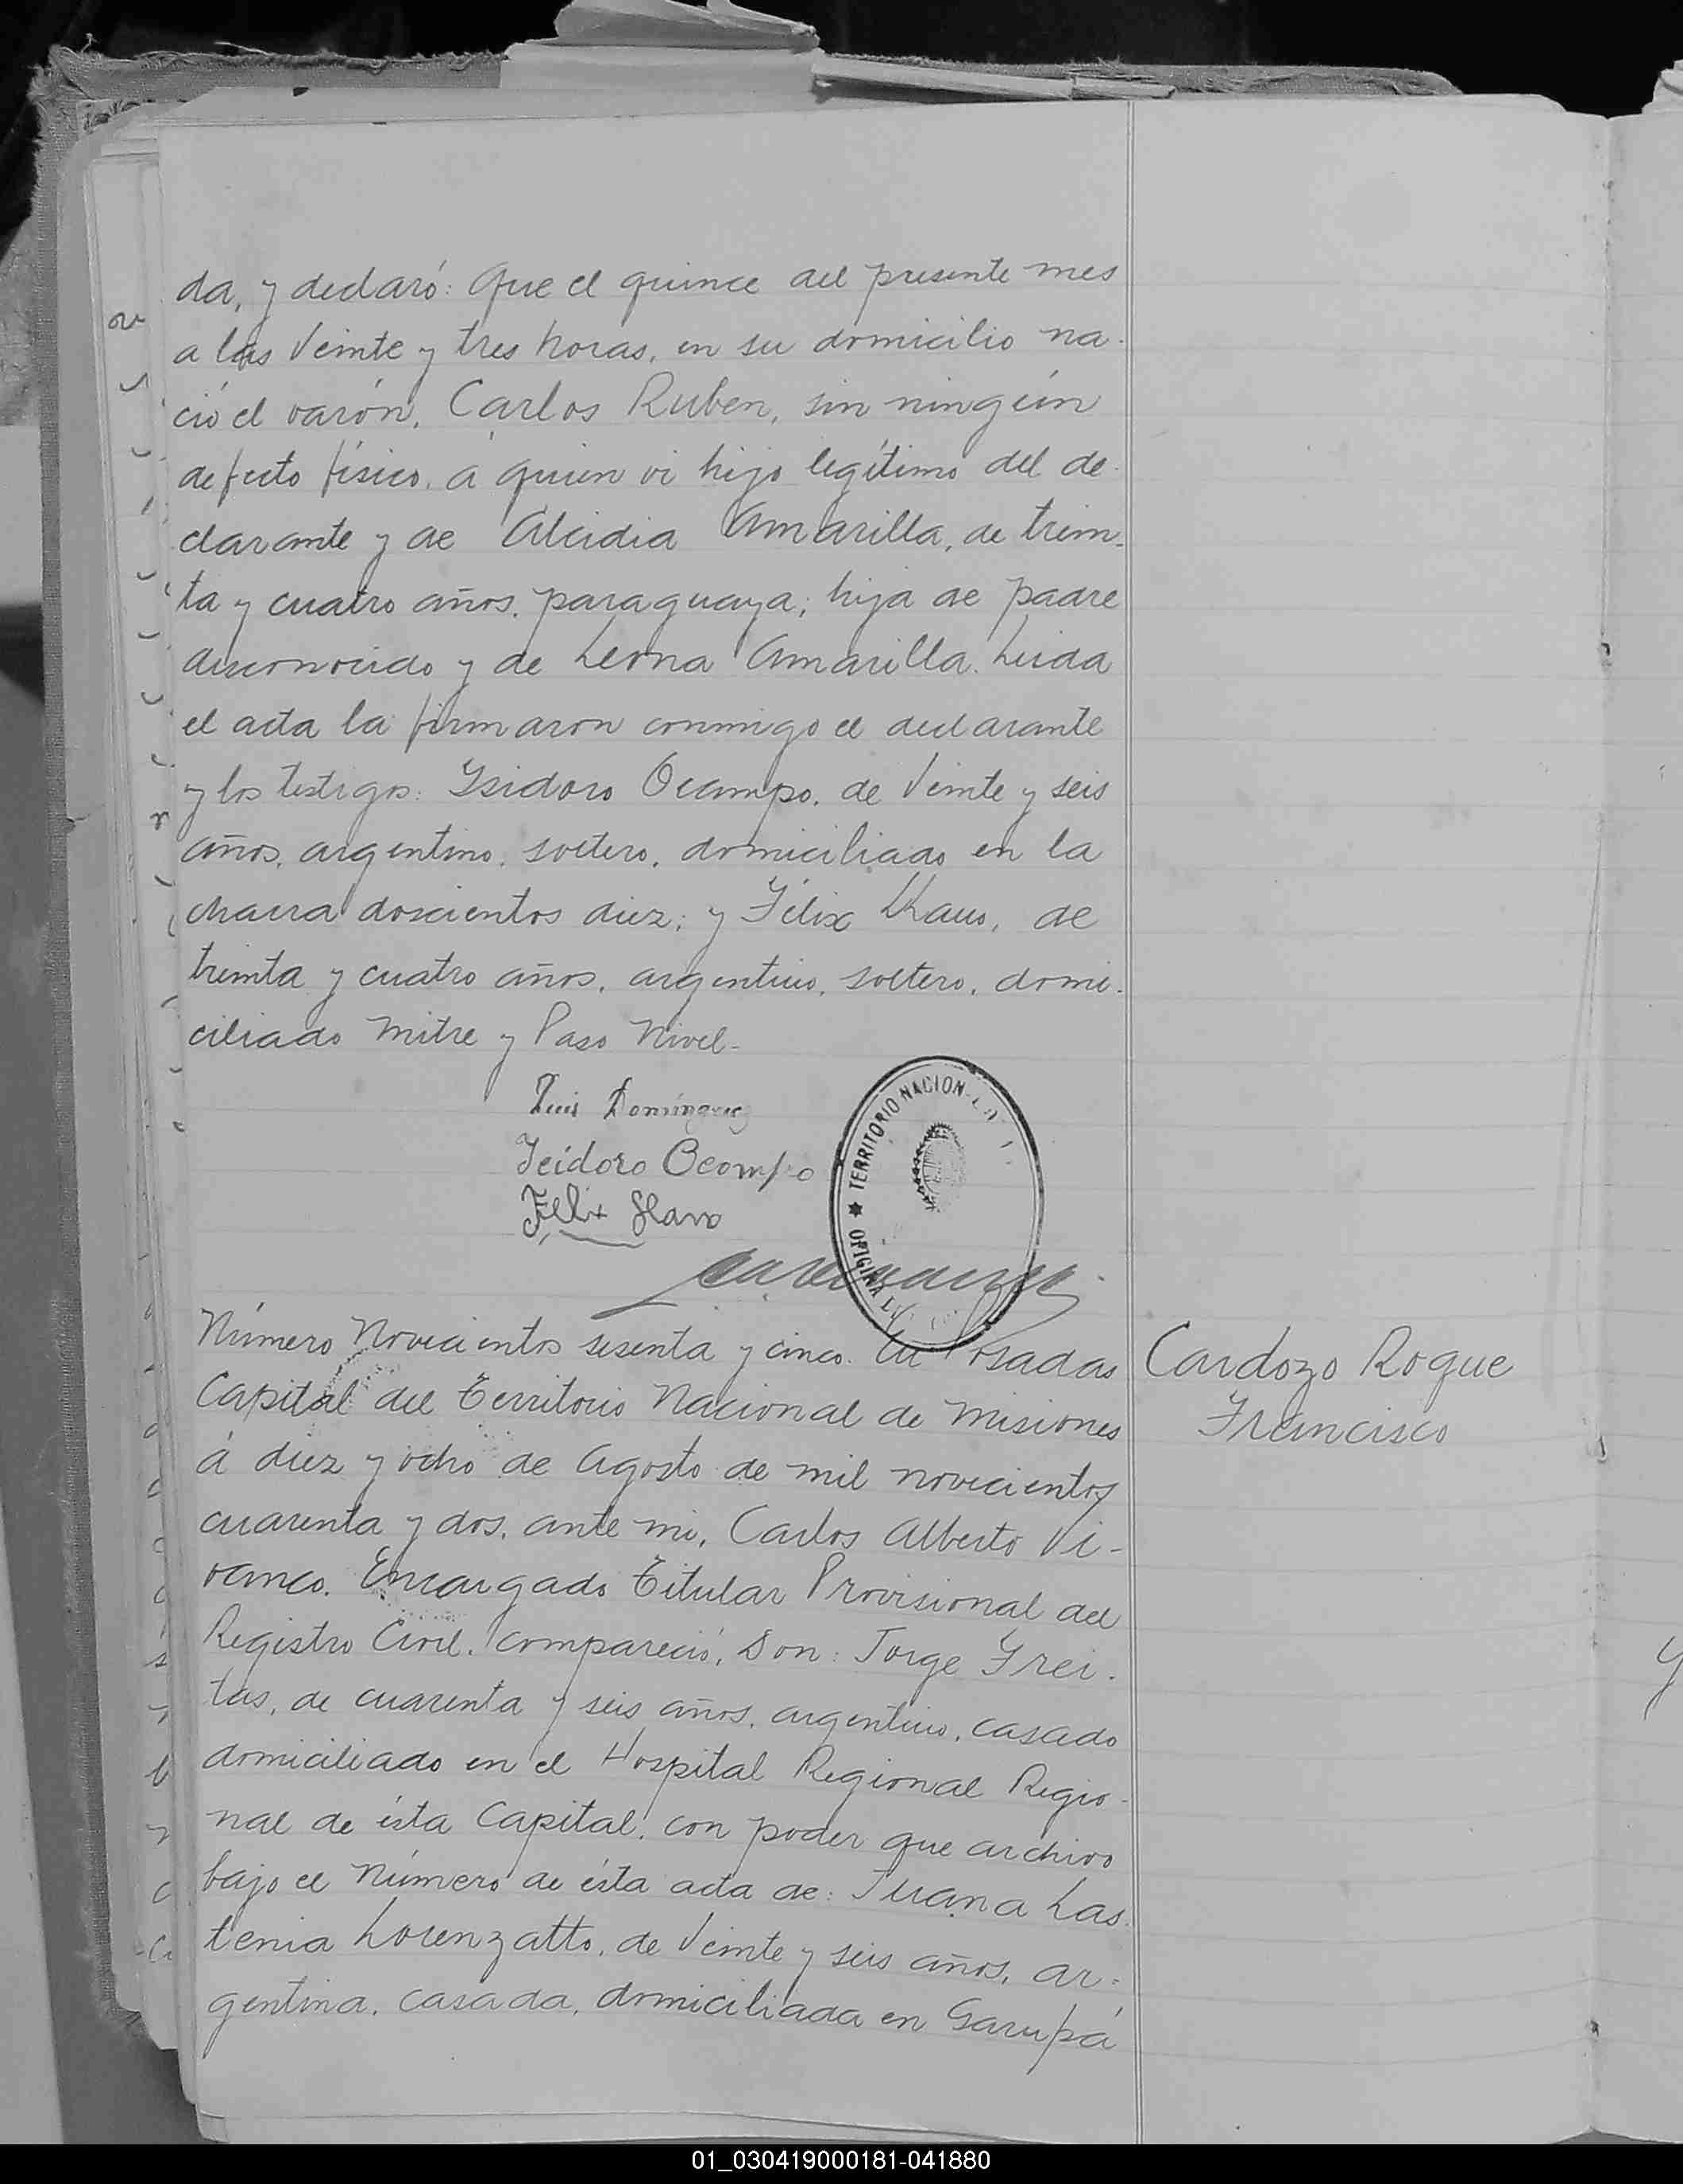 da, y declaró: Que el quince del presente mes
a las Veinte y tres horas, en su domicilio na-
ció el varón, Carlos Ruben, sin ningún
defecto físico, a quien vi hijo legítimo del de-
clarante y de Alcidia Amarilla, de trein-
ta y cuatro años, paraguaya; hija de padre
desconocido y de Leona Amarilla. Leida
el acta la firmaron conmigo el declarante
y los testigos: Isidoro Ocampo, de Veinte y seis
años, argentino, soltero, domiciliado en la
chacra doscientos diez; y Félix, de
treinta y cuatro años, argentino, soltero, domi-
ciliado Mitre y Paso Nivel-
Luis Dominguez
Isidoro Ocampo
Felix
TERRITORIO NACION
OFICINA
Número Novecientos sesenta y cinco. En Posadas
Capital del Territorio Nacional de Misiones
á diez y ocho de Agosto de mil novecientos
cuarenta y dos, ante mi, Carlos Alberto Vi-
vanco. Encargado Titular Provisional del
Registro Civil. Compareció, Don: Jorge Frei-
tas, de cuarenta y seis años, argentino, casado
domiciliado en el Hospital Regional Regio-
nal de ésta Capital, con poder que archivo
bajo el número de ésta acta de: Juana Las-
tenia Lorenzatto, de Veinte y seis años, ar-
gentina, casada, domiciliada en Garupá
Cardozo Roque
Francisco
01_030419000181-041880